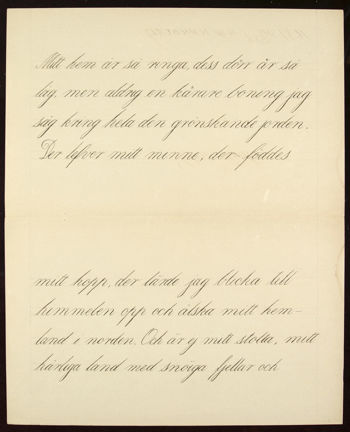 Mitt hem är så ringa, dess dörr är så
låg, men aldrig en kärare boning jag
såg kring hela den grönskande jorden.
Der lefver mitt minne, der föddes
mitt hopp, der lärde jag blicka till
himmelen opp och älska mitt hem-
land i norden. Och är ej mitt stolta, mitt
härliga land med snöiga fjellar och